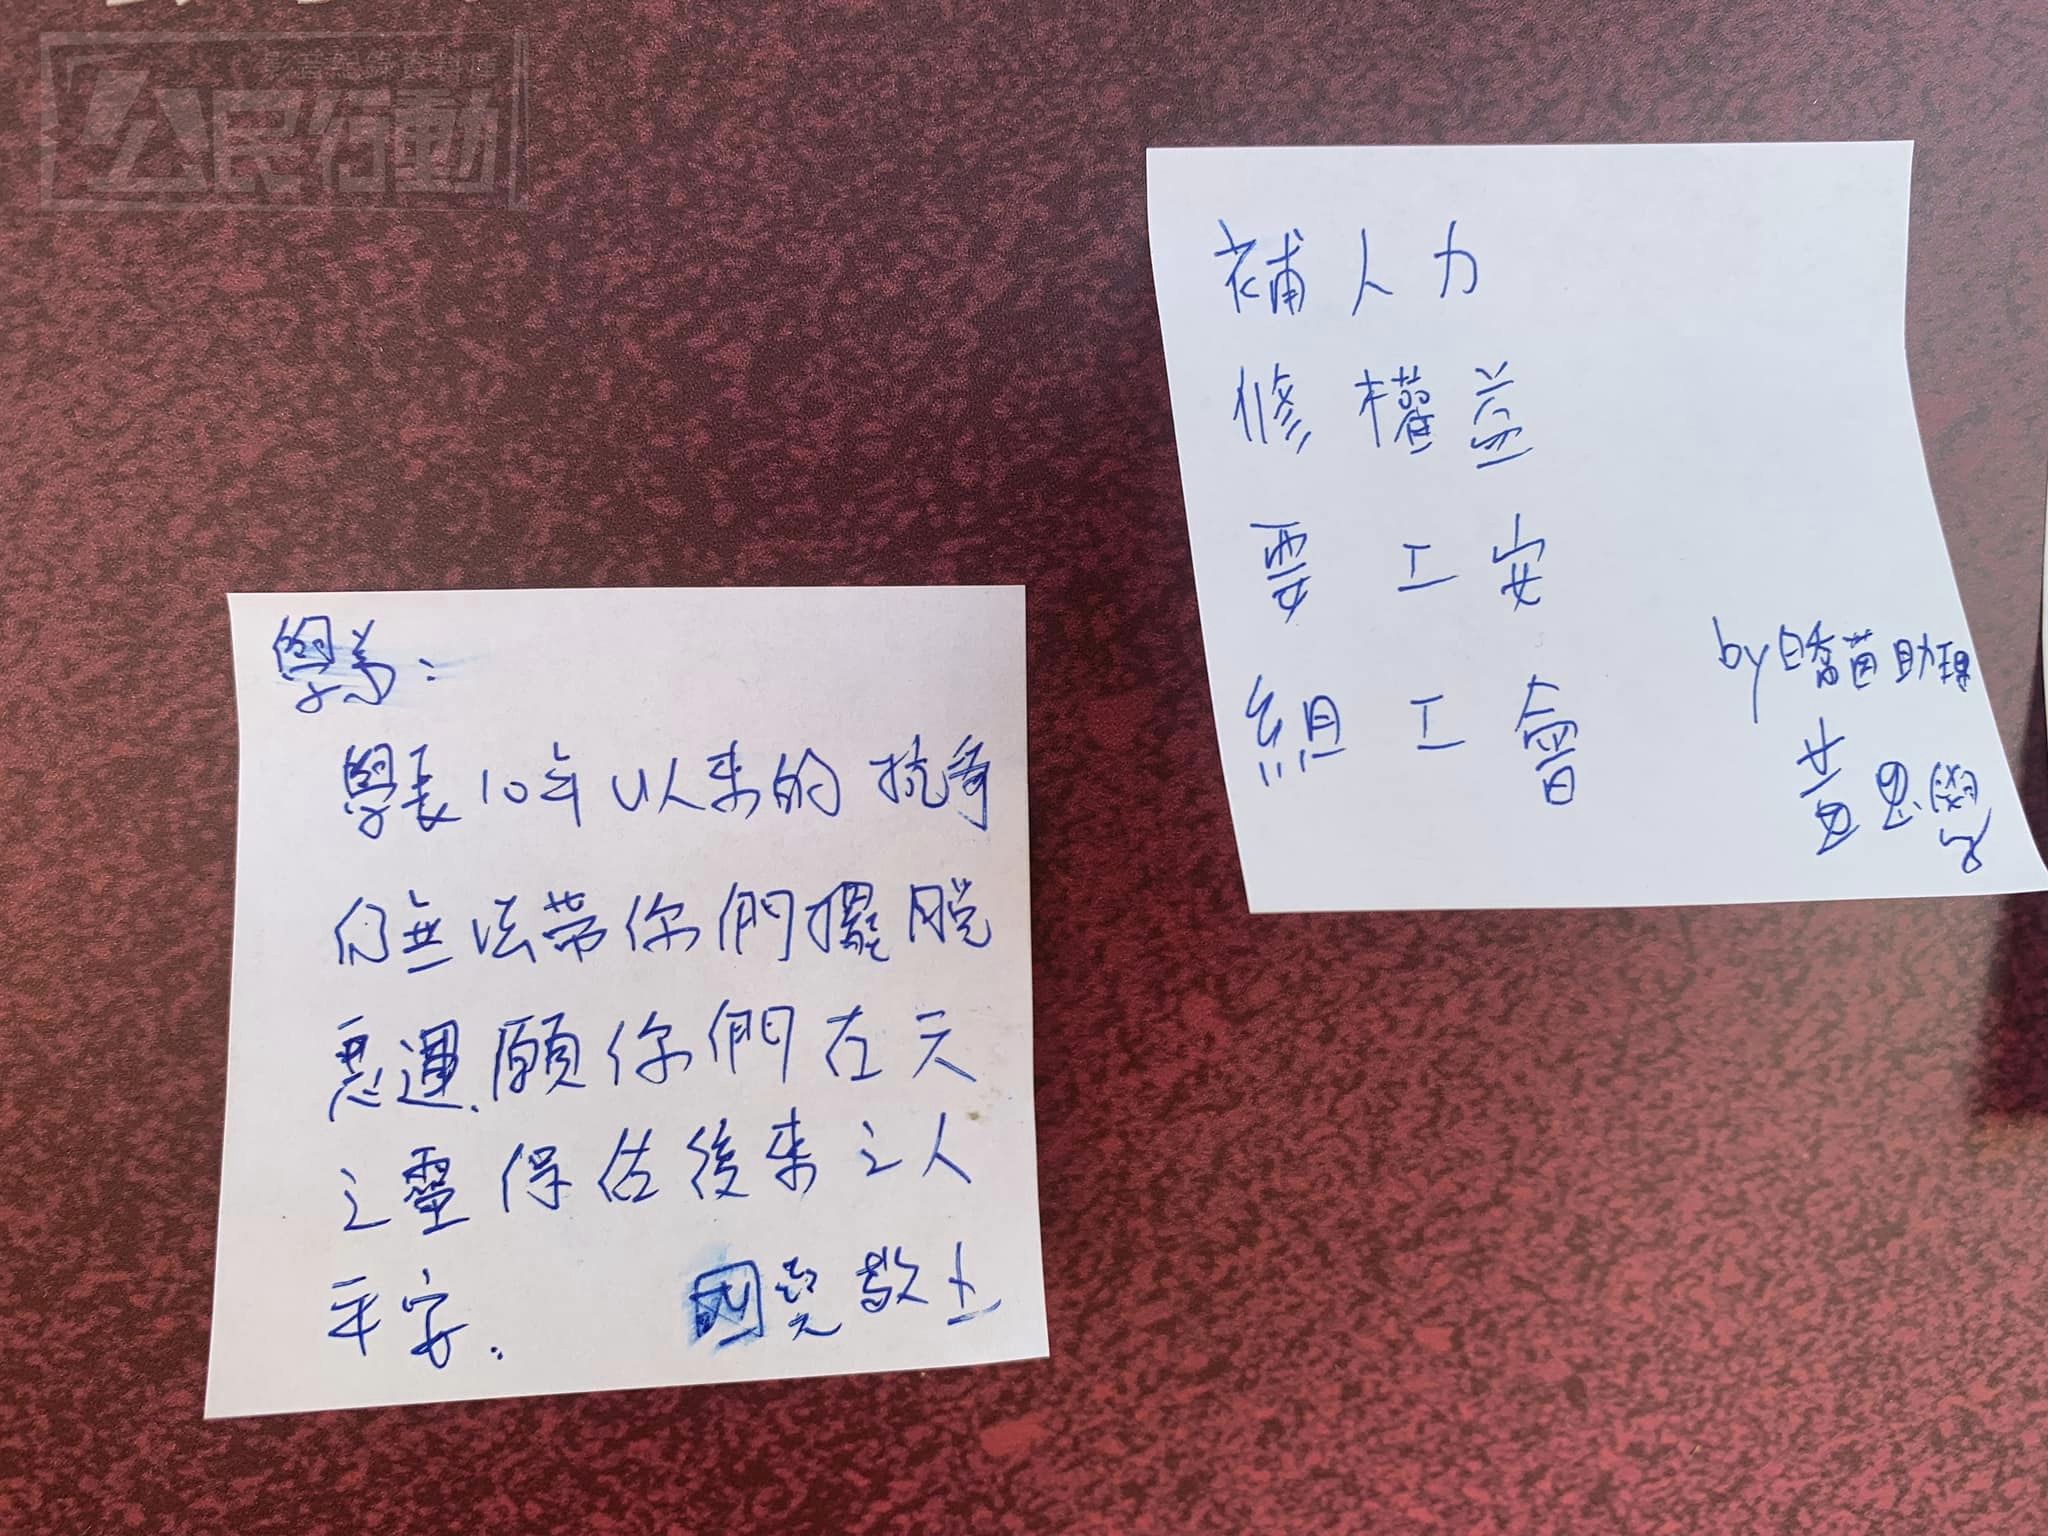 影音紀錄資料庫
公民行動
學弟：
學長10年以來的抗爭
仍無法帶你們擺脫
惡運,願你們在天
之靈保佑後來之人
平安.
敬上
補人力
修權益
要工安
組工會
by 苗助理
黃思